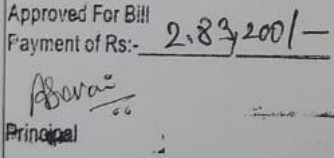 Approved For Bill
Payment of Rs:- 2.83,200/-
Principal